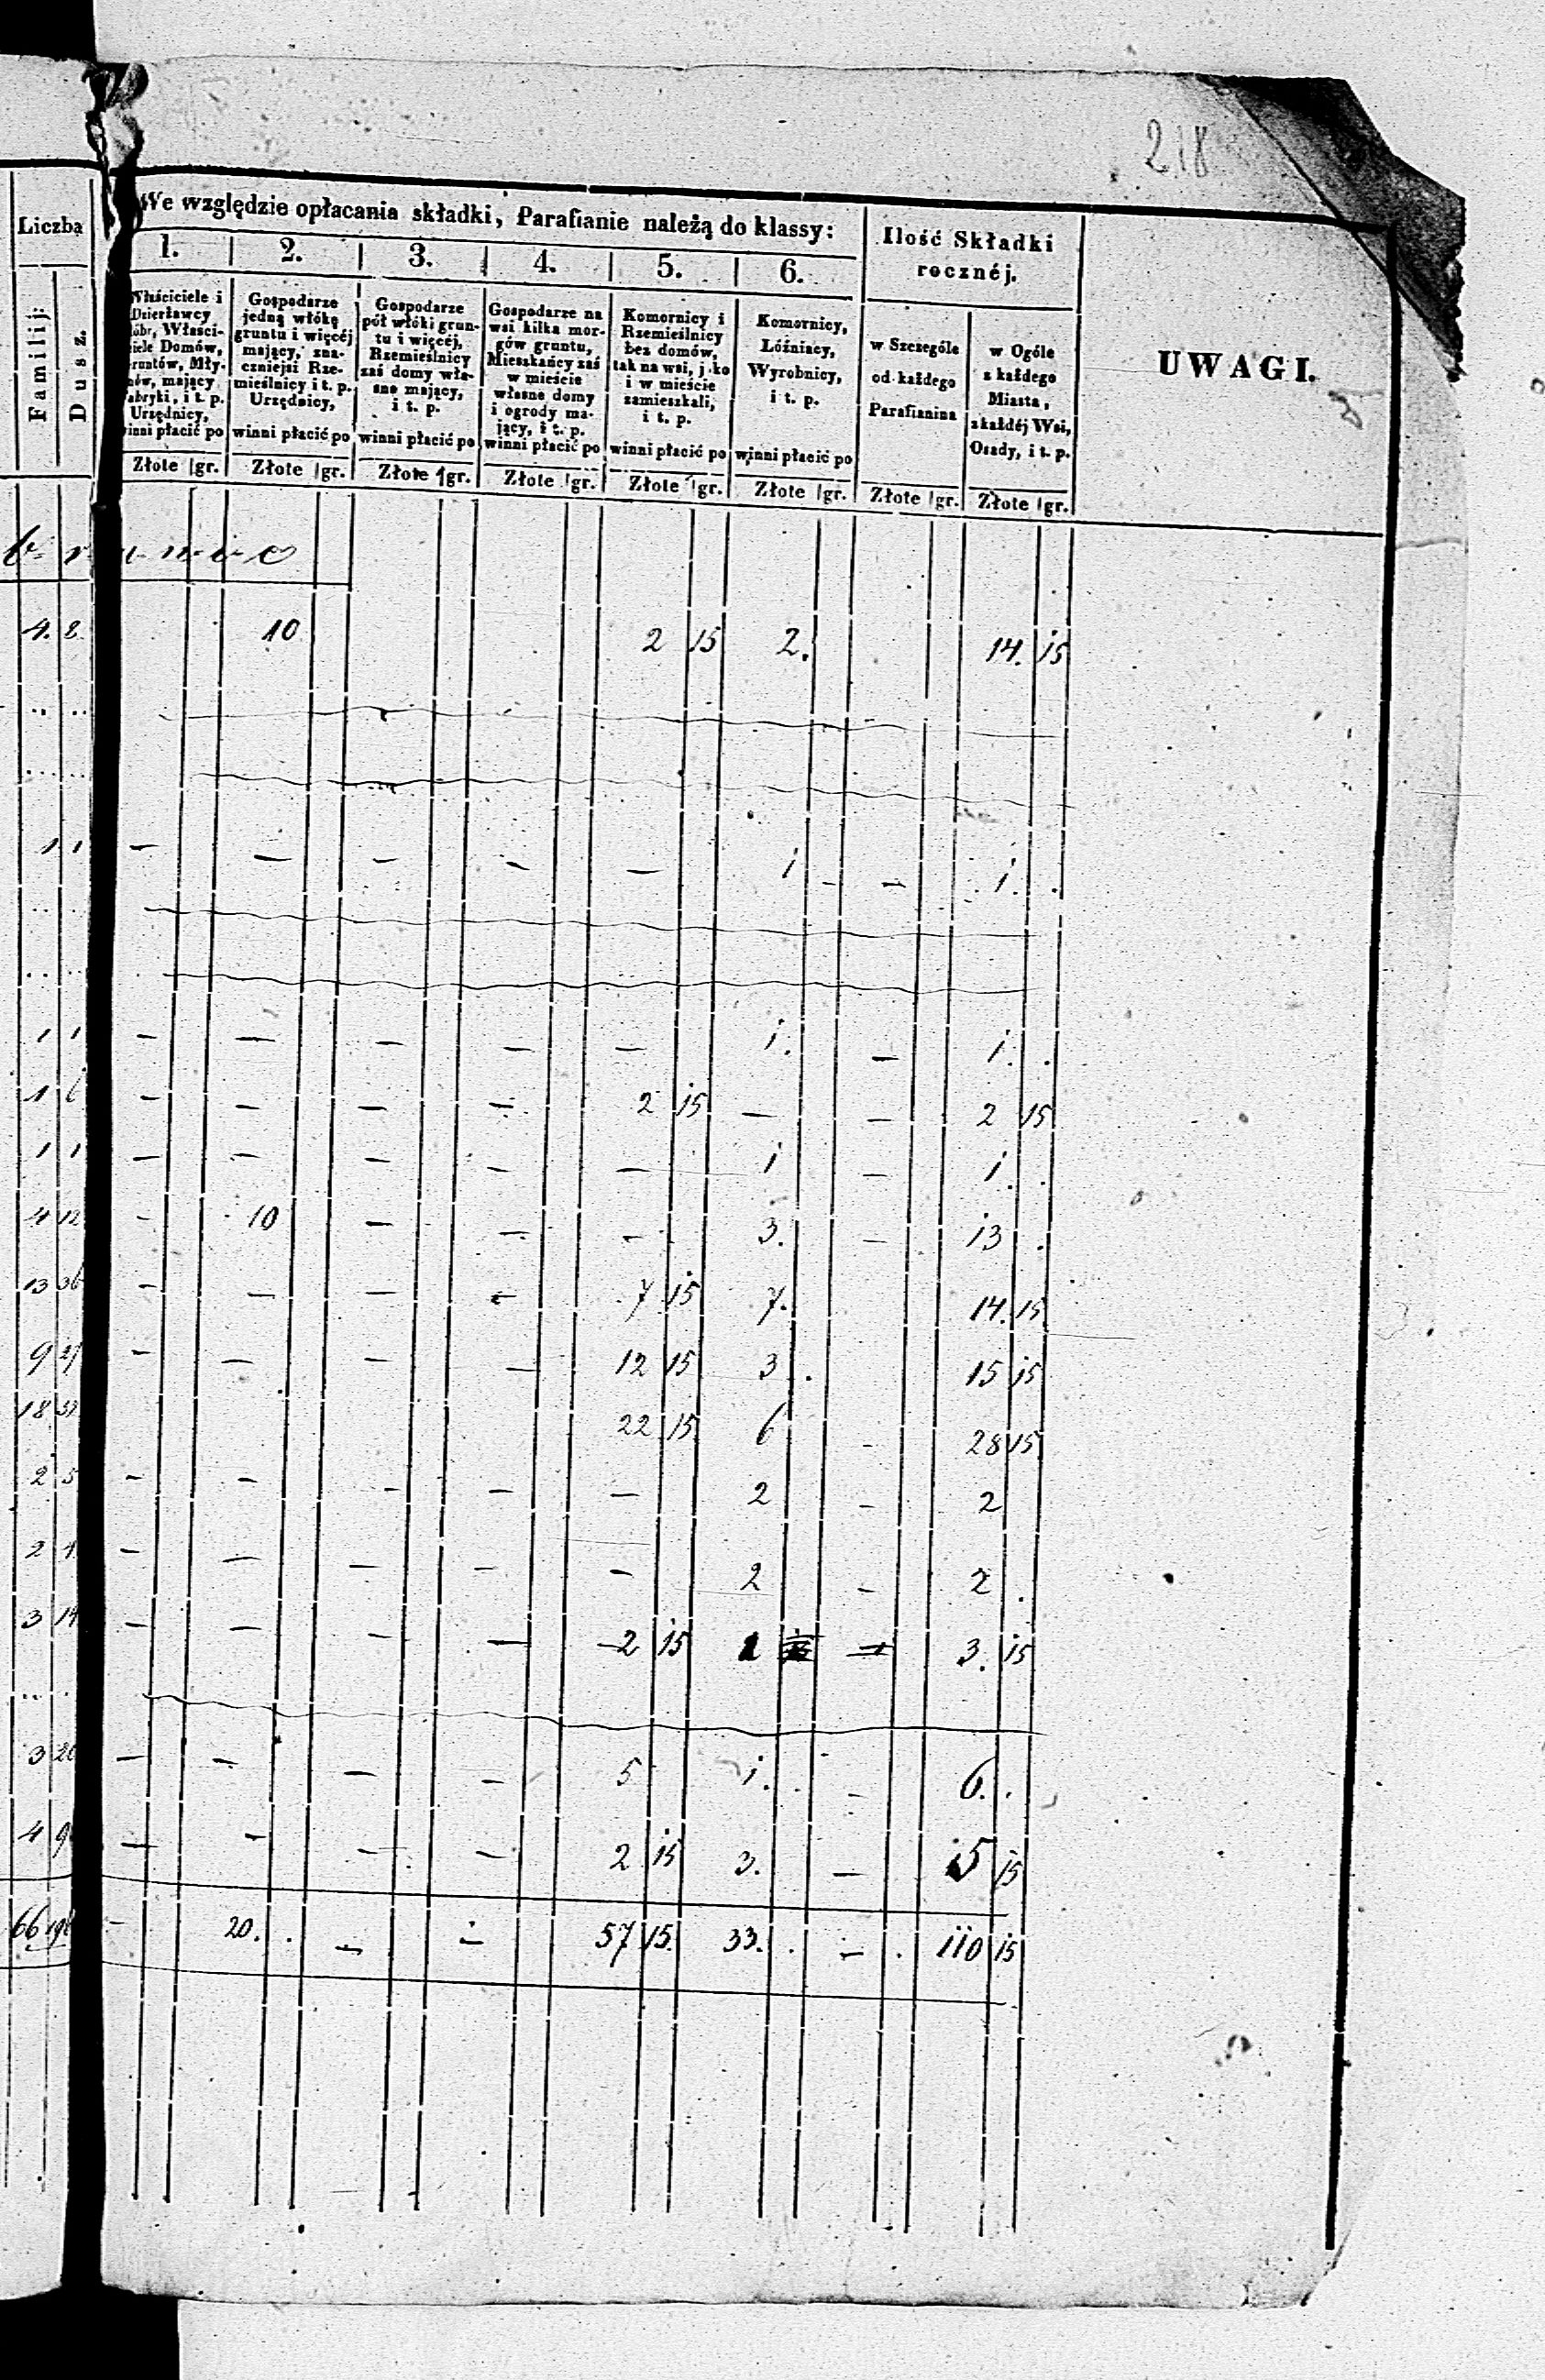 218
Liczba
Familij:
Dusz.
We względzie opłacania składki, Parafianie należą do klassy:
Ilość Składki
rocznéj.
UWAGI.
1. 2. 3. 4. 5. 6.
Właściciele i
Dzierżawcy
Właści-
Domów,
Mły-
mający
i t. p.
Urzędnicy,
winni płacić po
Gospodarze
jedną włókę
gruntu i więcéj
mający, zna-
czniejsi Rze-
mieślnicy i t. p.
Urzędnicy,
winni płacić po
Gospodarze
pół włóki grun-
tu i więcéj,
Rzemieślnicy
zaś domy wła-
sne mający,
i t. p.
winni płacić po
Gospodarze na
wsi kilka mor-
gów gruntu,
Mieszkańcy zaś
w mieście
własne domy
i ogrody ma-
jący, i t. p.
winni płacić po
Komornicy i
Rzemieślnicy
bez domów,
tak na wsi, jako
i w mieście
zamieszkali,
i t. p.
winni płacić po
Komornicy,
Lóźniacy,
Wyrobnicy,
i t. p.
winni płacić po
w Szczególe
od każdego
Parafianina
w Ogóle
z każdego
Miasta,
z każdéj Wsi,
Osady, i t. p.
Złote gr. Złote gr. Złote gr. Złote gr. Złote gr. Złote gr. Złote gr. Złote gr.
4. 8. 10 2 15 2. 14. 15
1 1 — — — — — 1 — — 1. .
1 1 — — — — — 1. — 1. .
1 6 — — — — 2 15 — — 2 15
1 1 — — — — — 1 — 1. .
4 12 — 10 — — — 3. — 13 .
13 36 — — — — 7 15 7. 14. 15
9 27 — — — — 12 15 3 . 15 15
18 22 15 6 — 28 15
2 5 — — — — — 2 — 2
2 — — — — — 2 — 2 .
3 14 — — — — 2 15 1 — 3. 15
3 — — — — 5 1. . — 6. .
4 9 — — — — 2 15 3. — 5 15
66 — 20. . — — 57 15. 33. . — . 110 15